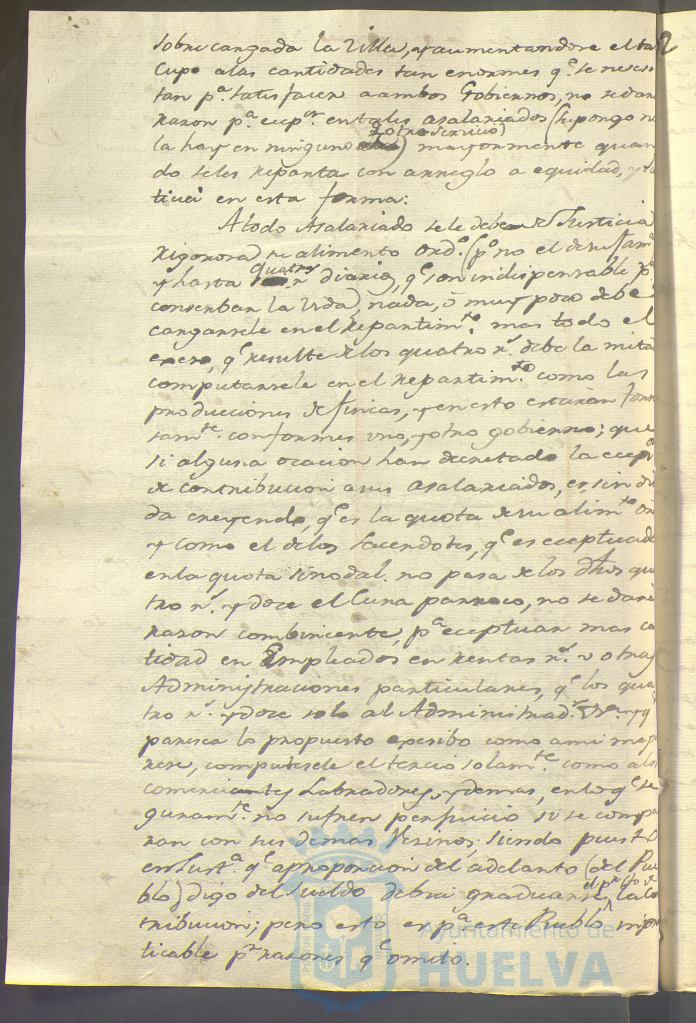 sobrecargada la Villa, y aumentandose el ta
2
Cupo alas cantidades tan enormes q.e se nesesi
tan p.a satisfacer a ambos Gobiernos, no se dara
razon p.a ecep.r en tales asalariados (supongo no
la hay en ninguno) mayormente quan
do seles reparta con arreglo a equidad, y jus
ticia en esta forma:
A todo Asalariado sele debe de Justicia
rigorosa su alimento Ord.o (p.o no el de su fam.a
y hasta quatro r.s diarios, q.e son indispensable p.a
conserbar la vida, nada, ó muy poco debe
cargarsele en el repartim.to mas todo el
exeso, q.e resulte de los quatro r.s debe la mitá
computarsele en el repartim.to como las
producciones de fincas, y en esto estarán
conformes uno, y otro gobierno; que
si alguna ocacion han decretado la ecep.n
de contribucion a sus asalariados, es sin du
da creyendo, q.e es la quota de su alim.to
y como el de los Sacerdotes, q.e es eceptuada
en la quota sinodal no pasa de los dhos qua
tro r.s y doce el Cura parroco, no se dará
razon combincente, p.a eceptuar mas ca
tidad en Empleados en rentas r.s u otras
Administraciones particulares, q.e los qua
tro r.s y doce solo al Administrad.r
paresca lo propuesto escribo como a mi me pa
rese, computesele el tercio solam.te como a los
comerciantes Labradores, y demas, en lo q.e se
guram.te no sufren perjuicio si se compa
ran con sus demas Vesinos; siendo puesto
en Just.a q.e a proporcion del adelanto (del Pue
blo) digo del Sueldo debria graduarse la Co
tribucion; pero esto es p.a este Pueblo impra
ticable p.r razones q.e omito.
Ayuntamiento de
HUELVA